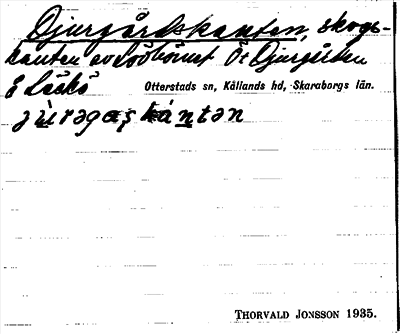 Djurgårdskanten, skogs-
kanten av Sööhörnet Öt Djurgården
å Läckö
Otterstads sn, Kållands hd, Skaraborgs län.
THORVALD JONSSON 1935.